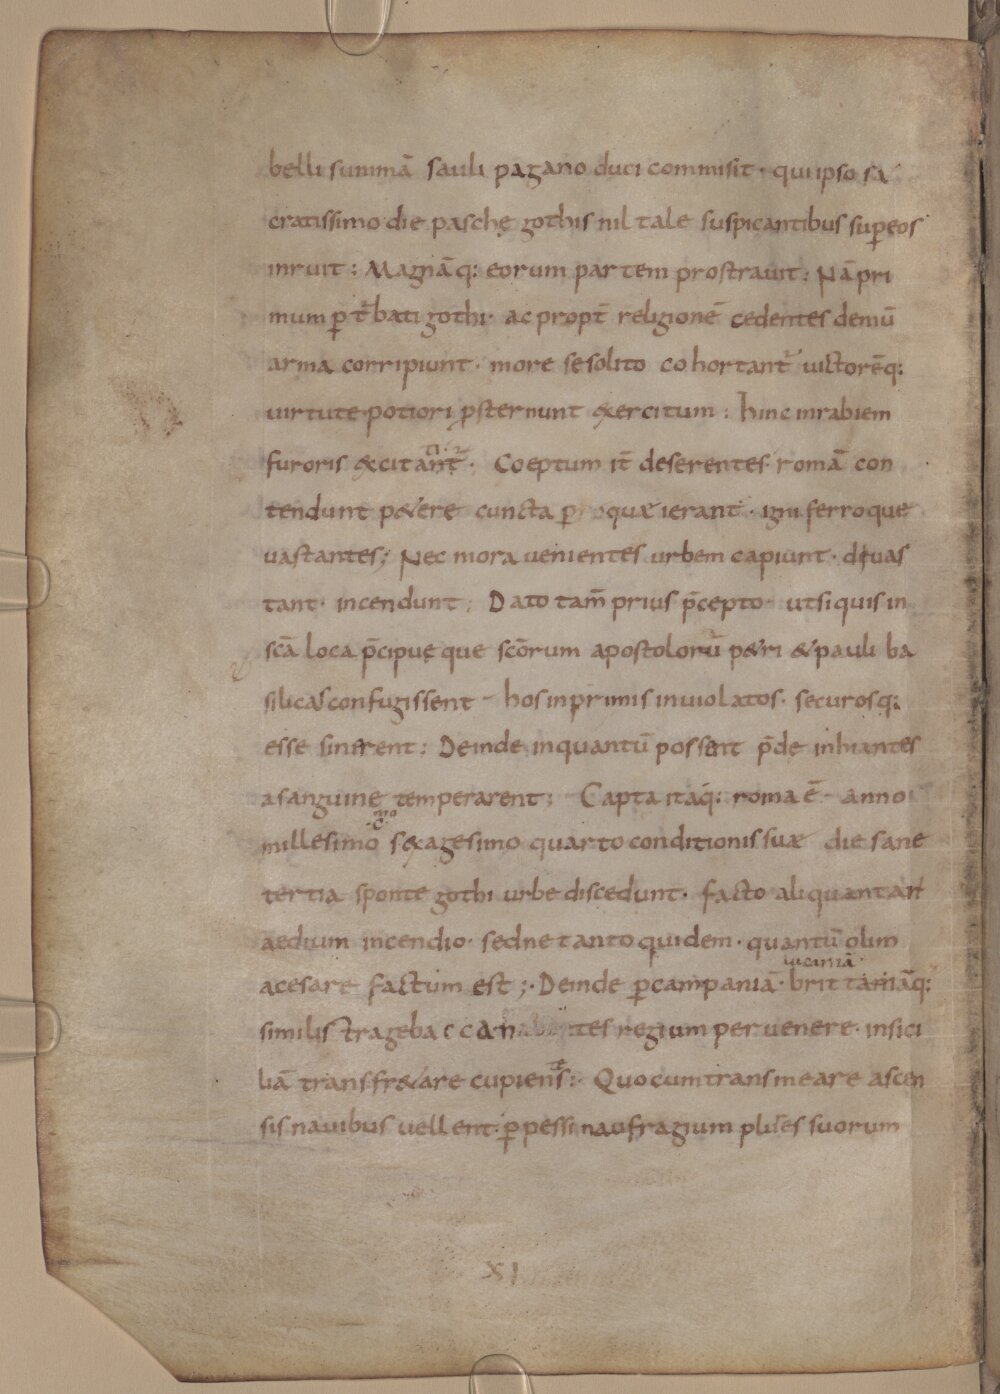 belli summā sauli pagano duci commisit · qui ipso sa
cratissimo die paschę gothis nil tale suspicantibus sup̱ eos
inruit : Magnāq: eorum partem prostrauit : Nā pri
mum p̱ t̄bati gothi · ac propt̄ religionē cedentes demū
arma corripiunt · more se solito cohortant̄ uictorēq:
uirtute potiori p̱sternunt exercitum : hinc in rabiem
furoris excitant̄ · Coeptum it̄ deserentes · romā con
tendunt p&ere cuncta p̱ quæ ierant · igni ferroque
uastantes ; Nec mora uenientes urbem capiunt · deuas
tant · incendunt ; Dato tam̄ prius p̄cepto · ut si quis in
sc̄a loca p̄cipuę que sc̄orum apostolorū p&ri & pauli ba
silicas confugissent · hos inprimis inuiolatos · securosq:
esse sinerent : Deinde inquantū possent p̄de inhiantes
a sanguine temperarent ; Capta itaq: roma ē anno
millesimo ·c̊·mo sexagesimo quarto conditionis suæ die sane
tertia sponte gothi urbe discedunt · facto aliquantarū
aedium incendio · sed ne tanto quidem · quantū olim
lucaniā
a cesare factum est ; · Deinde p̱ campaniā · brittaniāq:
simili strage bacchantes regium peruenere · in sici
liā transfr&are cupiens : · Quo cum transmeare ascen
sis nauibus uellent · p̱pessi naufragium plures suorum
XI